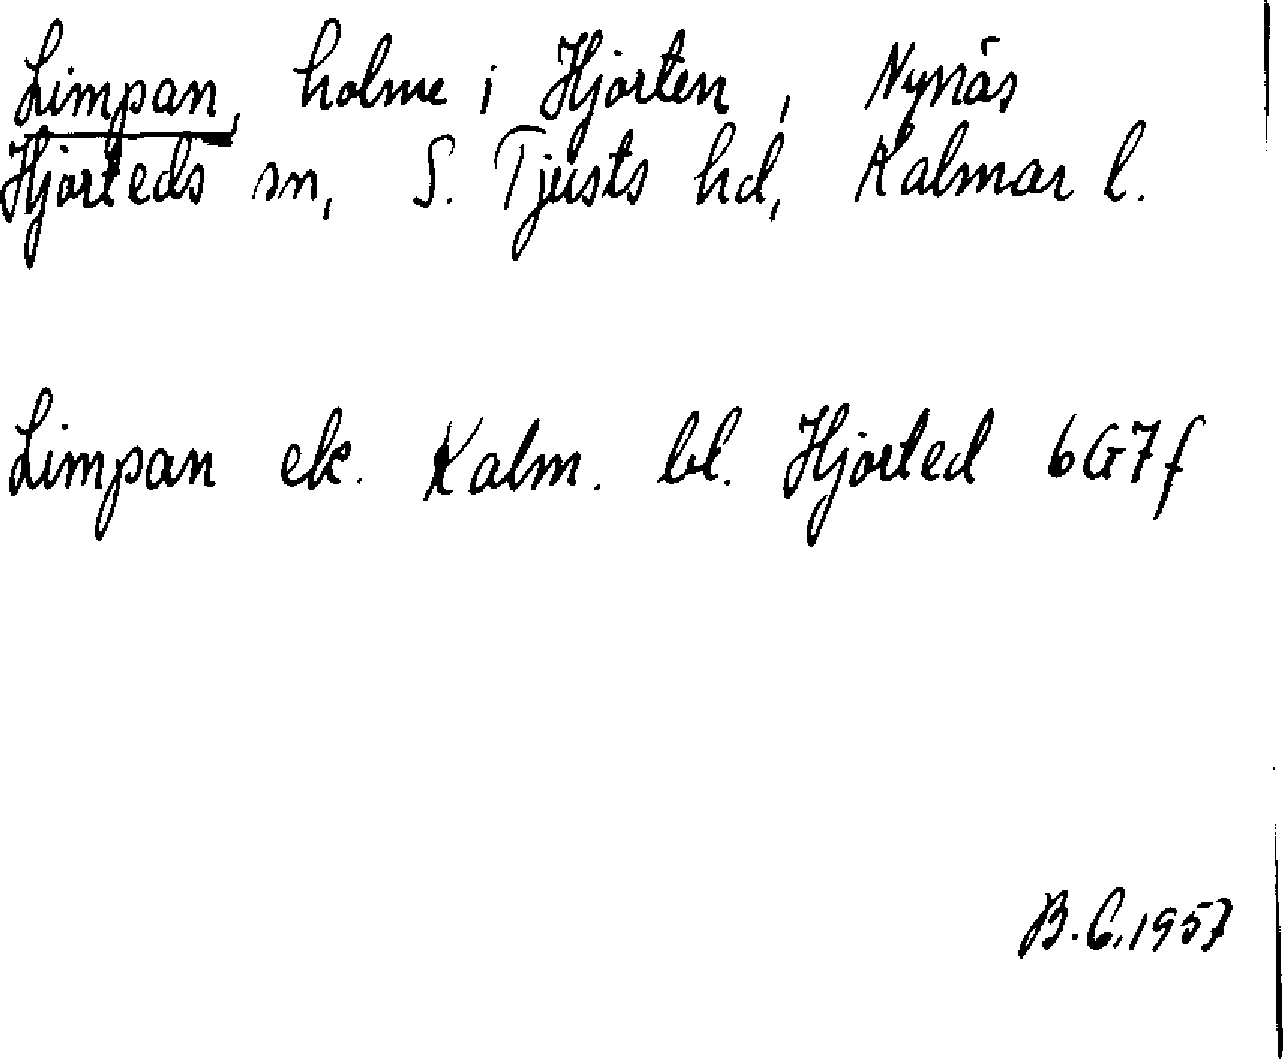 Limpan, holme i Hjorten, Nynäs
Hjorteds sn, S. Tjusts hd, Kalmar l.
Limpan ek. Kalm. bl. Hjorted 6G7f
B.C.1957